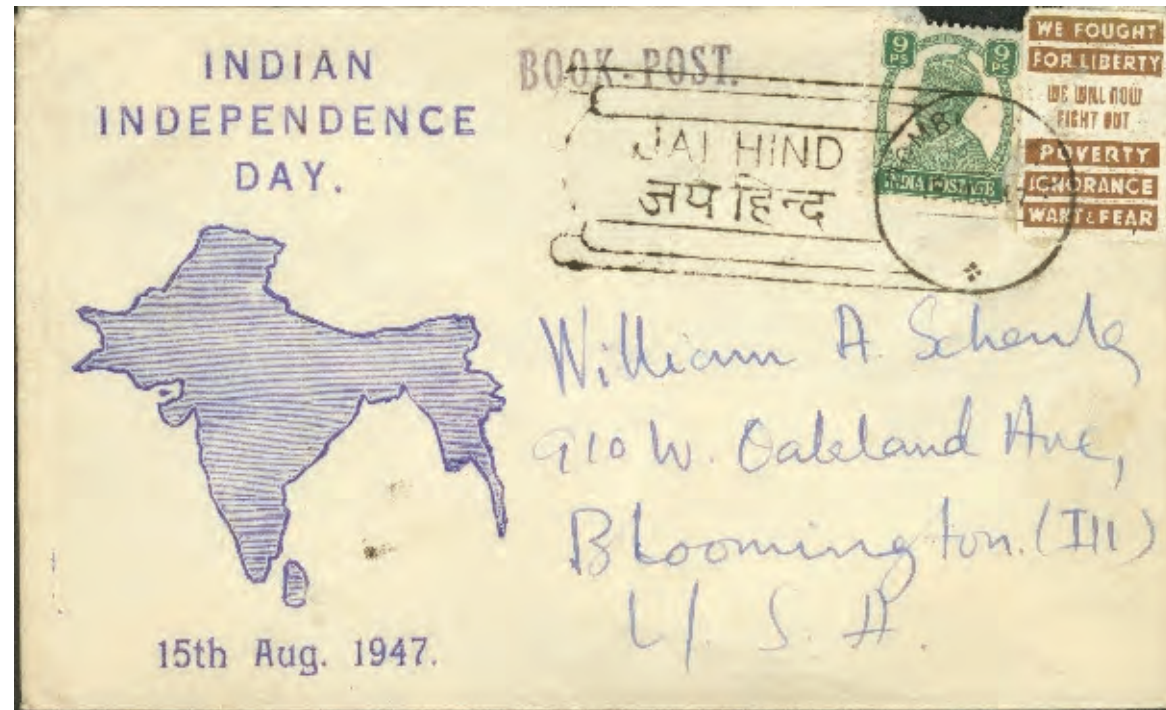 INDIAN
INDEPENDENCE
DAY.
15th Aug. 1947.
BOOK-POST.
JAI HIND
जय हिन्द
9 PS 9 PS
INDIA POSTAGE
WE FOUGHT
FOR LIBERTY
WE WILL NOW
FIGHT OUT
POVERTY
IGNORANCE
WANT & FEAR
William A.
910 W. Oakland Ave,
Bloomington. (Ill)
U. S. A.